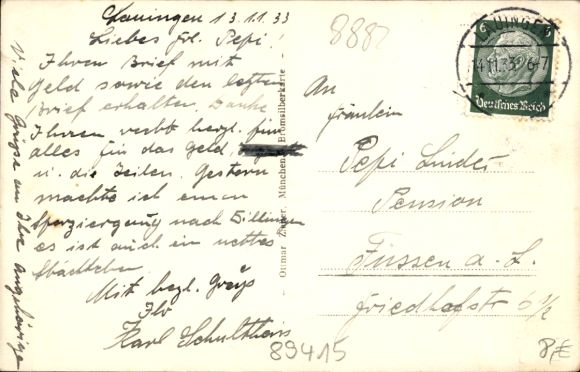 Lauingen 13.11.33
Liebes Frl. Pepi!
Ihren Brief mit
Geld sowie den letzten
Brief erhalten. Danke
Ihnen verb. herzl. für
alles für das Geld
u. die Zeilen. Gestern
machte ich einen
Spaziergang nach Dillingen
es ist auch ein nettes
Städtchen
Mit herzl. Grüß
Ihr
Karl Schultheis
Viele Grüße an Ihre Angehörige
Ottmar Zieher, München. Bromsilberkarte
8882
LAUINGEN
14.11.33. 6-7
6 6
Deutsches Reich
An
Fräulein
Pepi Linder
Pension
Füssen a. L.
Friedhofstr 6 1/2
89415
8,€